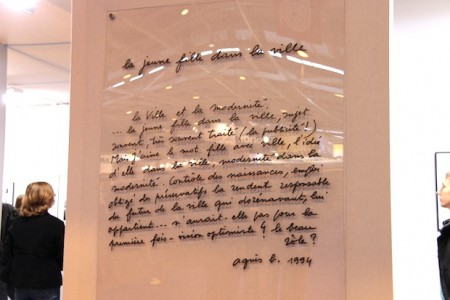 la jeune fille dans la ville
la Ville et la modernité.
... la jeune fille dans la ville, sujet
souvent, très souvent traité (la publicité!)
Moi j'aime le mot fille avec ville, l'idée
d'elle dans la ville, modernité dans la
modernité. Contrôle des naissances, emploi
obligé de préservatifs la rendent responsable
du futur de la ville qui dorénavant, lui
appartient... n'aurait-elle pas pour la
première fois - vision optimiste le beau
rôle ?
agnès b. 1994